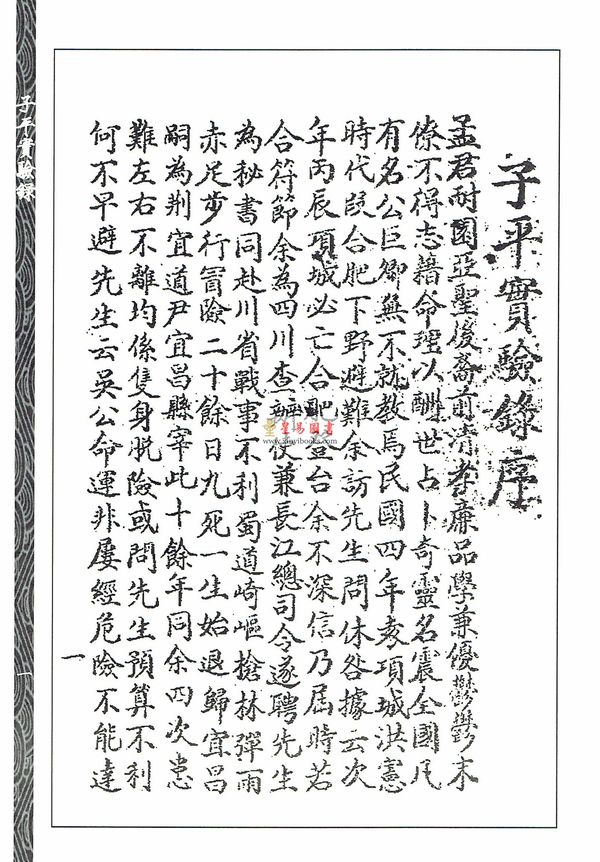 子平實驗錄序
孟君耐園亞聖後裔前清孝廉品學兼優鬱鬱末
僚不得志藉命理以酬世占卜奇靈名震全國凡
有名公巨卿無不就教焉民國四年袁項城洪憲
時代段合肥下野避難余訪先生問休咎據云次
年丙辰項城必亡合肥登台余不深信乃屆時若
合符節余為四川查辦使兼長江總司令遂聘先生
為秘書同赴川省戰事不利蜀道崎嶇槍林彈雨
赤足步行冒險二十餘日九死一生始退歸宜昌
嗣為荆宜道尹宜昌縣宰此十餘年同余四次患
難左右不離均係隻身脫險或問先生預算不利
何不早避先生云吳公命運非屢經危險不能達
一
子平實驗錄
一
星易圖書
www.xinyibooks.com